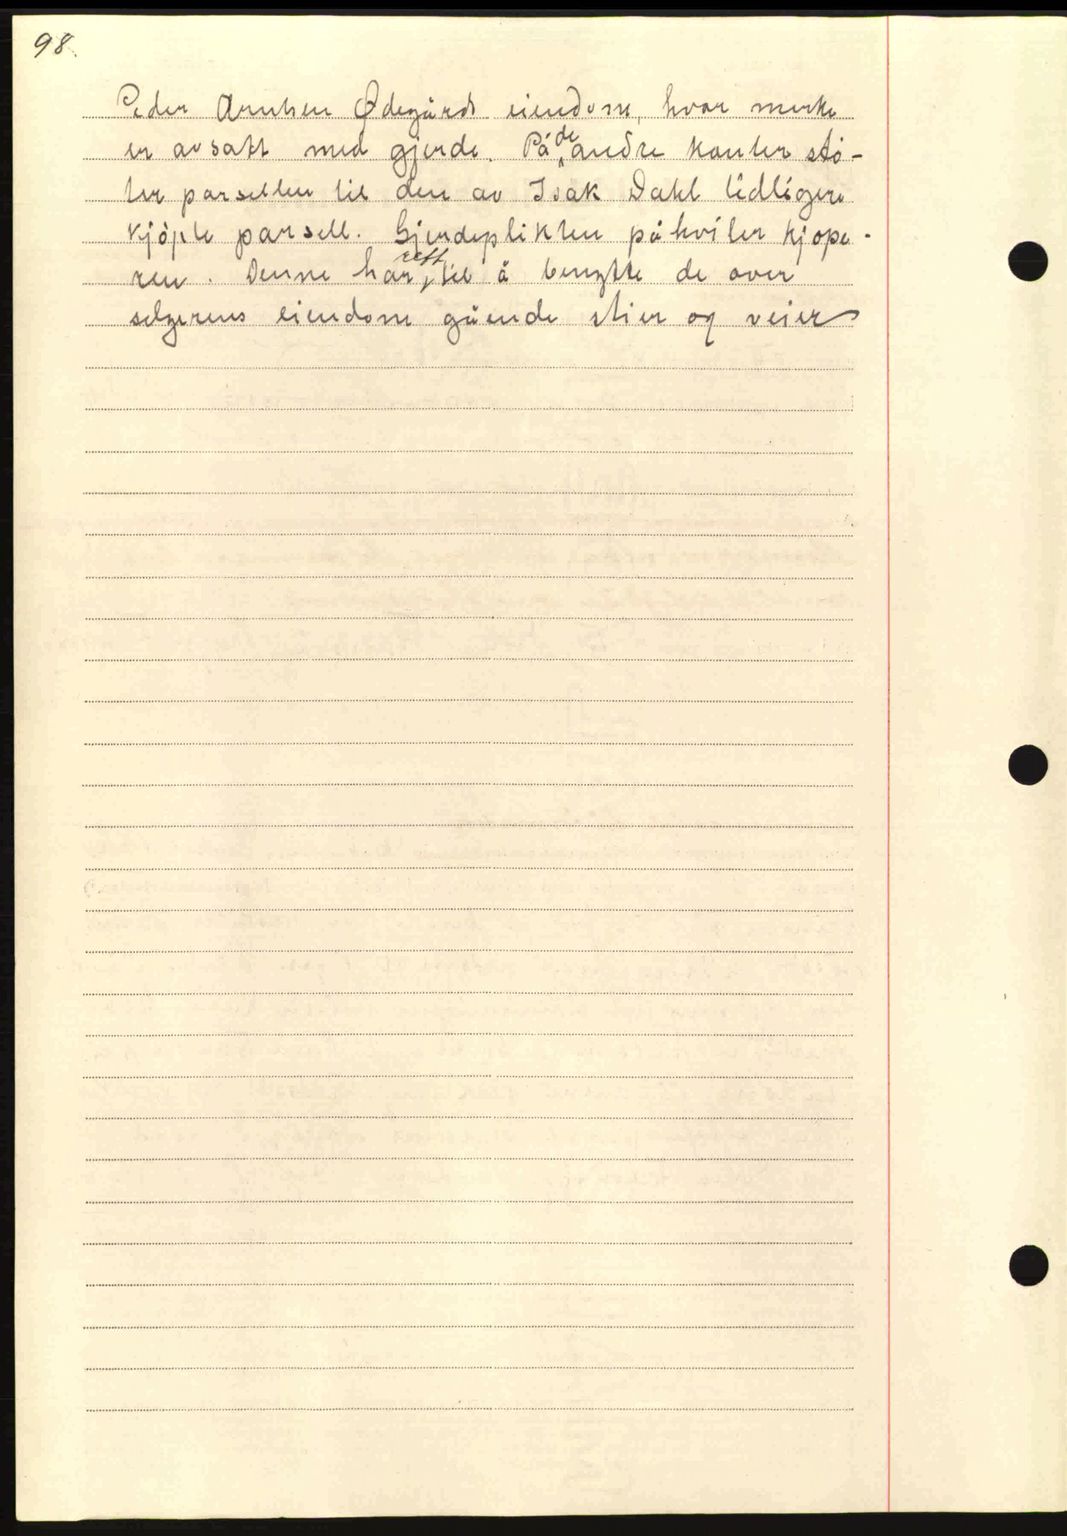 98.
Peder Arntsen Ødegårds eiendom, hvor merke
er avsatt med gjerde. På de andre kanter stö-
ter parsellen til den av Isak Dahl tidligere
kjöpte parsell. Gjerdeplikten påhviler kjøpe-
ren. Denne har rett til å benytte de over
selgerens eiendom gående stier og veier